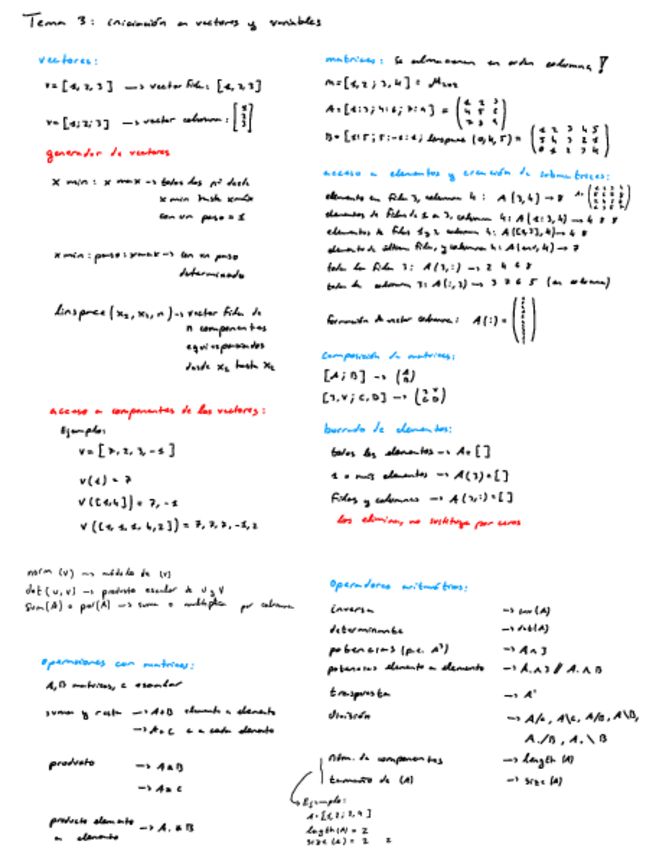 Tema 3: iniciación a vectores y variables
vectores:
v=[1,2,3] → vector fila: [1,2,3]
v=[1;2;3] → vector columna:
generador de vectores
x min : x max → todos los nº desde
x min hasta xmáx
con un paso = 1
x min : paso : x max → con un paso
determinado
linspace(x₁, x₂, n) → vector fila de
n componentes
equiespaciados
desde x₁ hasta x₂
acceso a componentes de los vectores:
Ejemplo:
v = [7, 2, 3, -1]
v(1) = 7
v([1,4]) = 7, -1
v([1, 1, 1, 4, 2]) = 7, 7, 7, -1, 2
norm (v) → módulo de (v)
dot(u,v) → producto escalar de u y v
sum(A) o → suma o multiplica por columna
operaciones con matrices:
A, B matrices, c escalar
suma y resta → A+B elemento a elemento
→ A+c c a cada elemento
producto → A*B
→ A*c
producto elemento
a elemento → A.*B
matrices: se almacenan en orden columna!
m=[1,2;3,4] =
A=[1:3;4:6;7:9] = (1 2 3
4 5 6
7 8 9)
B=[1:5;5:-1:1; linspace(0,4,5)] = (1 2 3 4 5
5 4 3 2 1
0 1 2 3 4)
acceso a elementos y creación de submatrices:
elemento en fila 3, columna 4: A(3,4) → 8
elementos de filas de 1 a 3, columna 4: A(1:3,4) → 4 8 8
elementos de filas 1 y 2 columna 4: → 4 8
elemento de última fila, y columna 4: → 7
toda la fila 3: A(3,:) → 2 4 6 8
toda la columna 3: A(:,3) → 3 7 6 5 (en columna)
formación de vector columna: A(:) =
composición de matrices:
[A;B] → (A
B)
→
borrado de elementos:
todos los elementos → A=[]
1 o más elementos → A(3)=[]
Filas y columnas → A(3,:)=[]
los elimina, no sustituye por ceros
operadores aritméticos:
inversa → inv(A)
determinante → det(A)
potencias (p.e. A³) → A^3
potencias elemento a elemento → A.^3 // A.^B
traspuesta → A'
división → A/c, A\c, A/B, A\B,
A./B, A.\B
núm. de componentes → length (A)
tamaño de (A) → size (A)
Ejemplo:
A=[1,2;3,4]
length(A) = 2
size(A) = 2 2